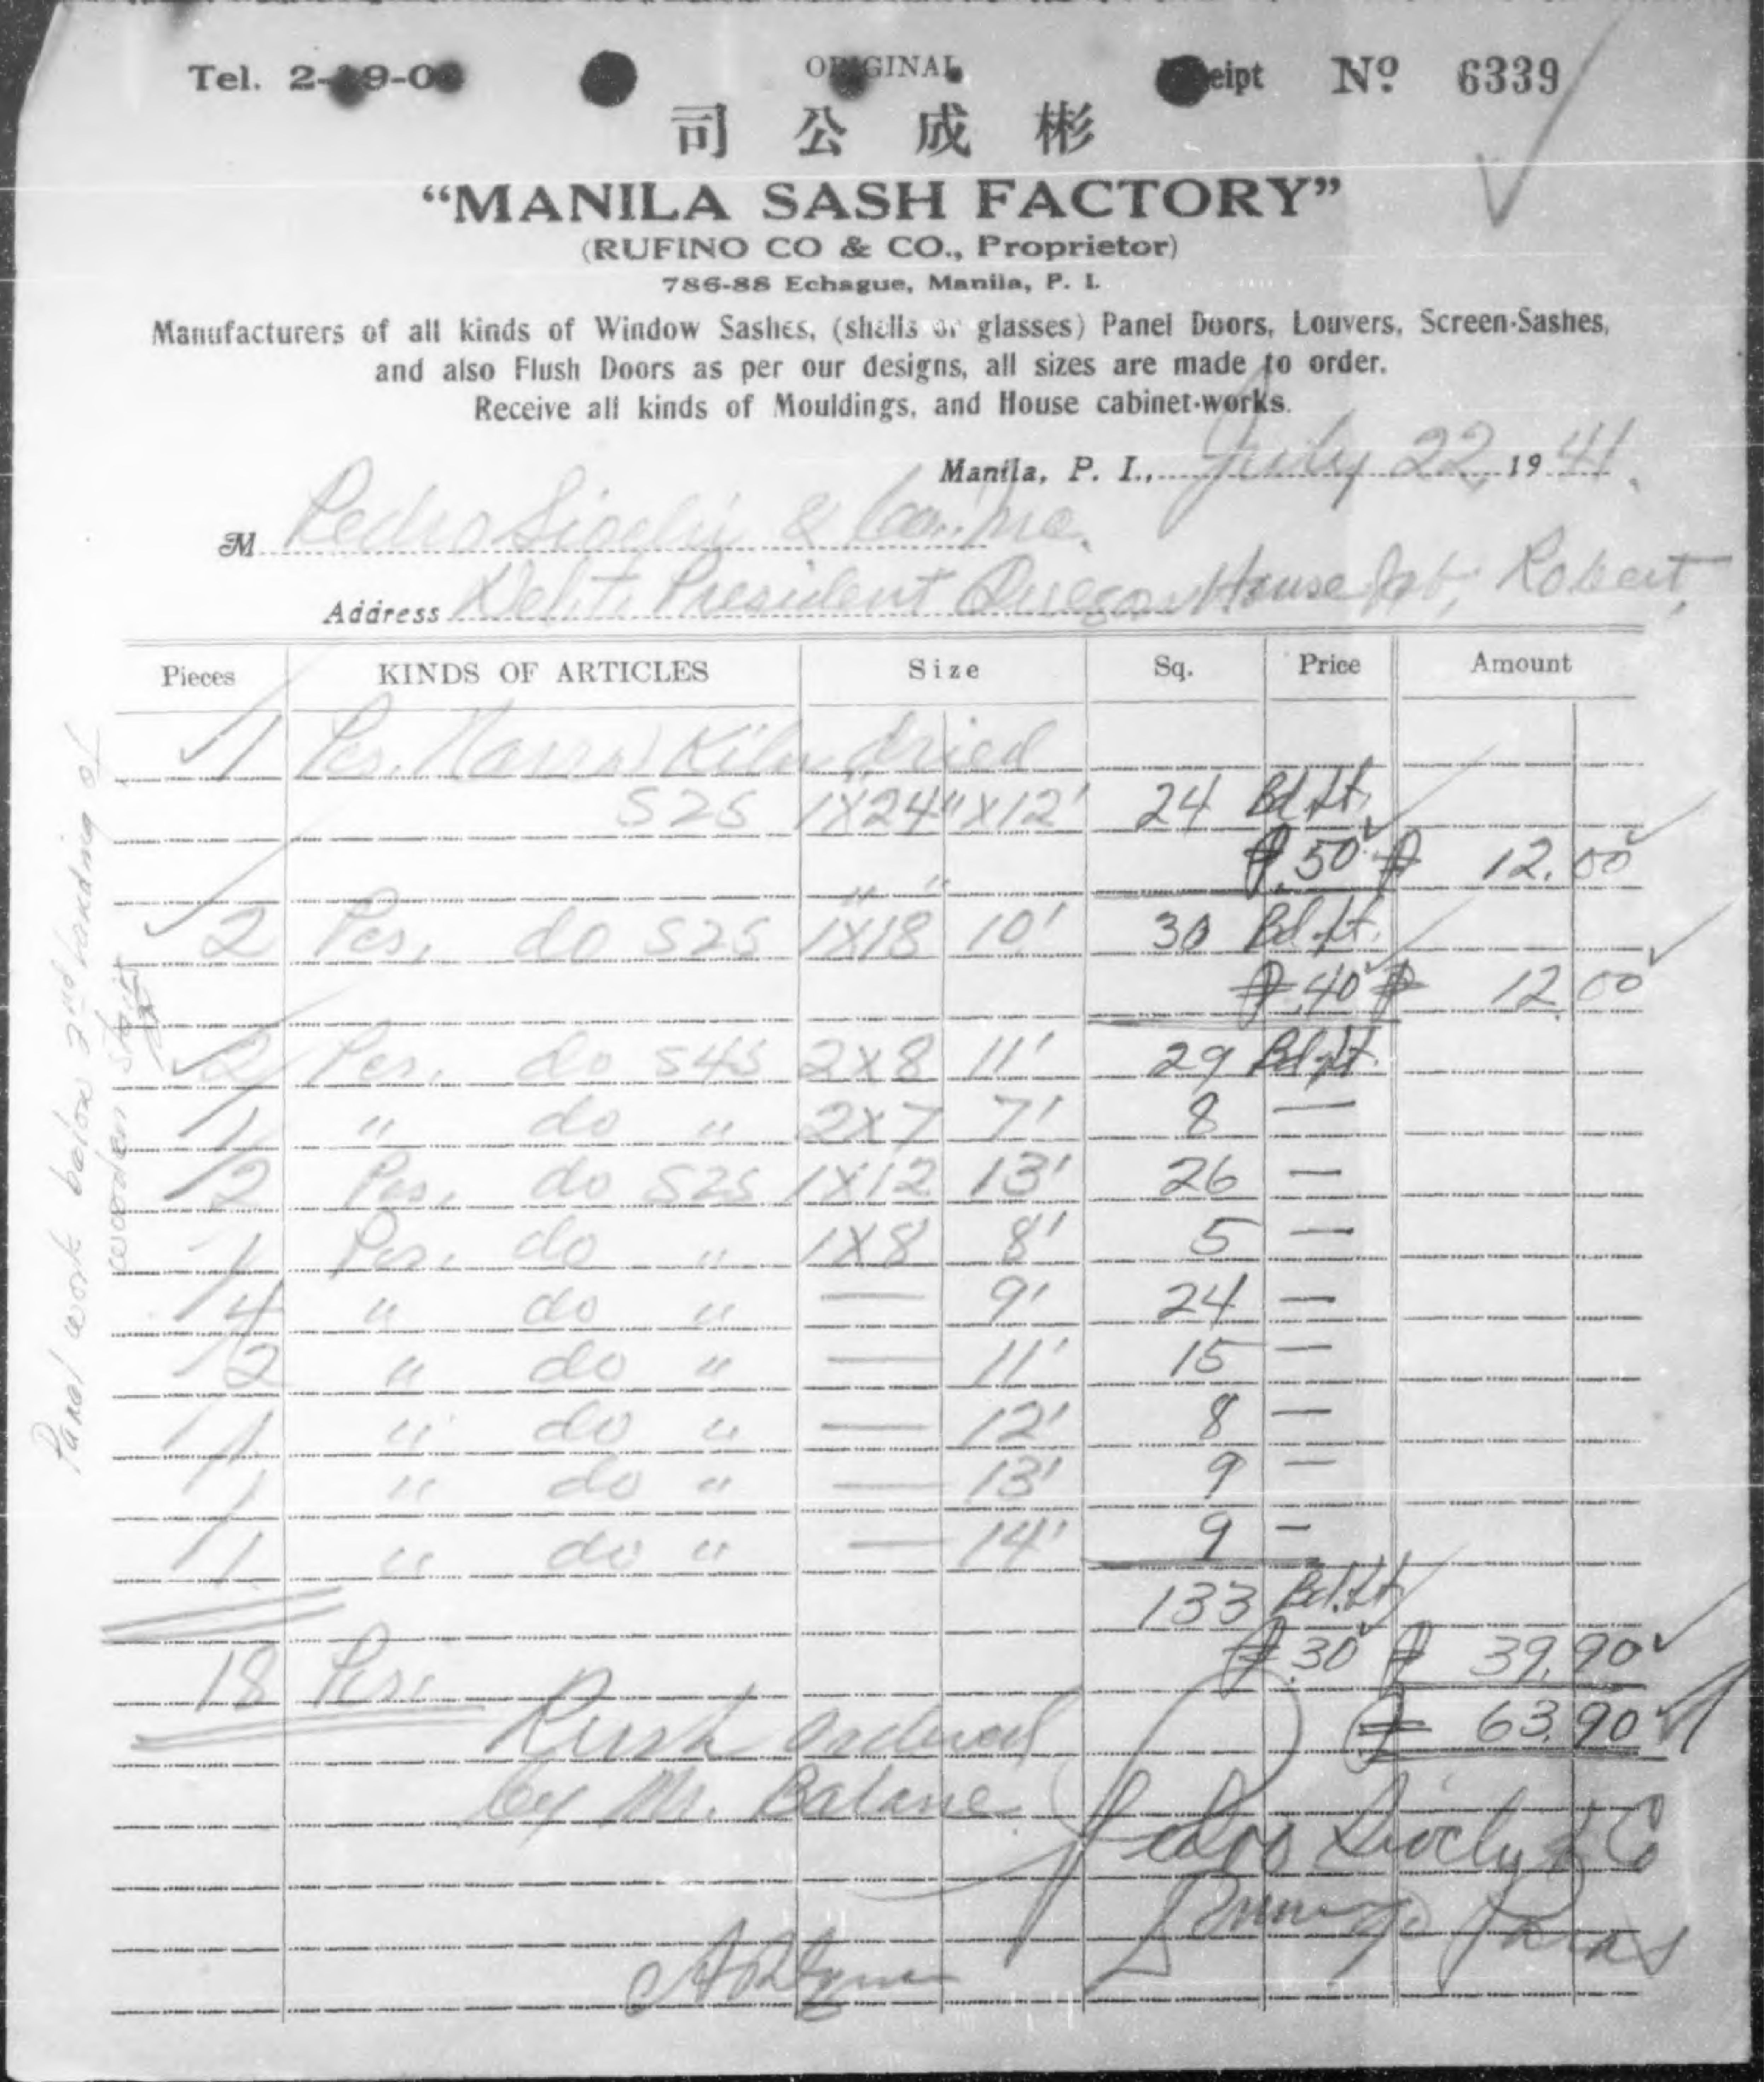 Tel. 2-
ORIGINAL
Receipt Nº 6339
司公成彬
“MANILA SASH FACTORY”
(RUFINO CO & CO., Proprietor)
786-88 Echague, Manila, P. I.
Manufacturers of all kinds of Window Sashes, (shells or glasses) Panel Doors, Louvers, Screen-Sashes,
and also Flush Doors as per our designs, all sizes are made to order.
Receive all kinds of Mouldings, and House cabinet-works.
Manila, P. I., July 22, 1941.
M Pedro Siochi & Co. Inc.
Address President House Job, Robert,
Pieces KINDS OF ARTICLES Size Sq. Price Amount
1 Pcs. Narra Kiln dried
S2S 1"X24"X12' 24 Bd.ft.
₱.50 ₱ 12.00
2 Pcs. do S2S 1"X18" 10' 30 Bd.ft.
₱.40 ₱ 12.00
2 Pcs. do S4S 2X8 11' 29 Bd.ft.
1 " do " 2X7 7' 8 —
2 Pcs. do S2S 1X12 13' 26 —
1 Pcs. do " 1X8 8' 5 —
4 " do " — 9' 24 —
2 " do " — 11' 15 —
1 " do " — 12' 8 —
1 " do " — 13' 9 —
1 " do " — 14' 9 —
133 Bd.ft.
₱.30 ₱ 39.90
18 Pcs.
₱ 63.90
Rush ordered
by Mr. Balane
Pedro Siochi & Co
Paras
Panel work below 2nd landing of
wooden stair